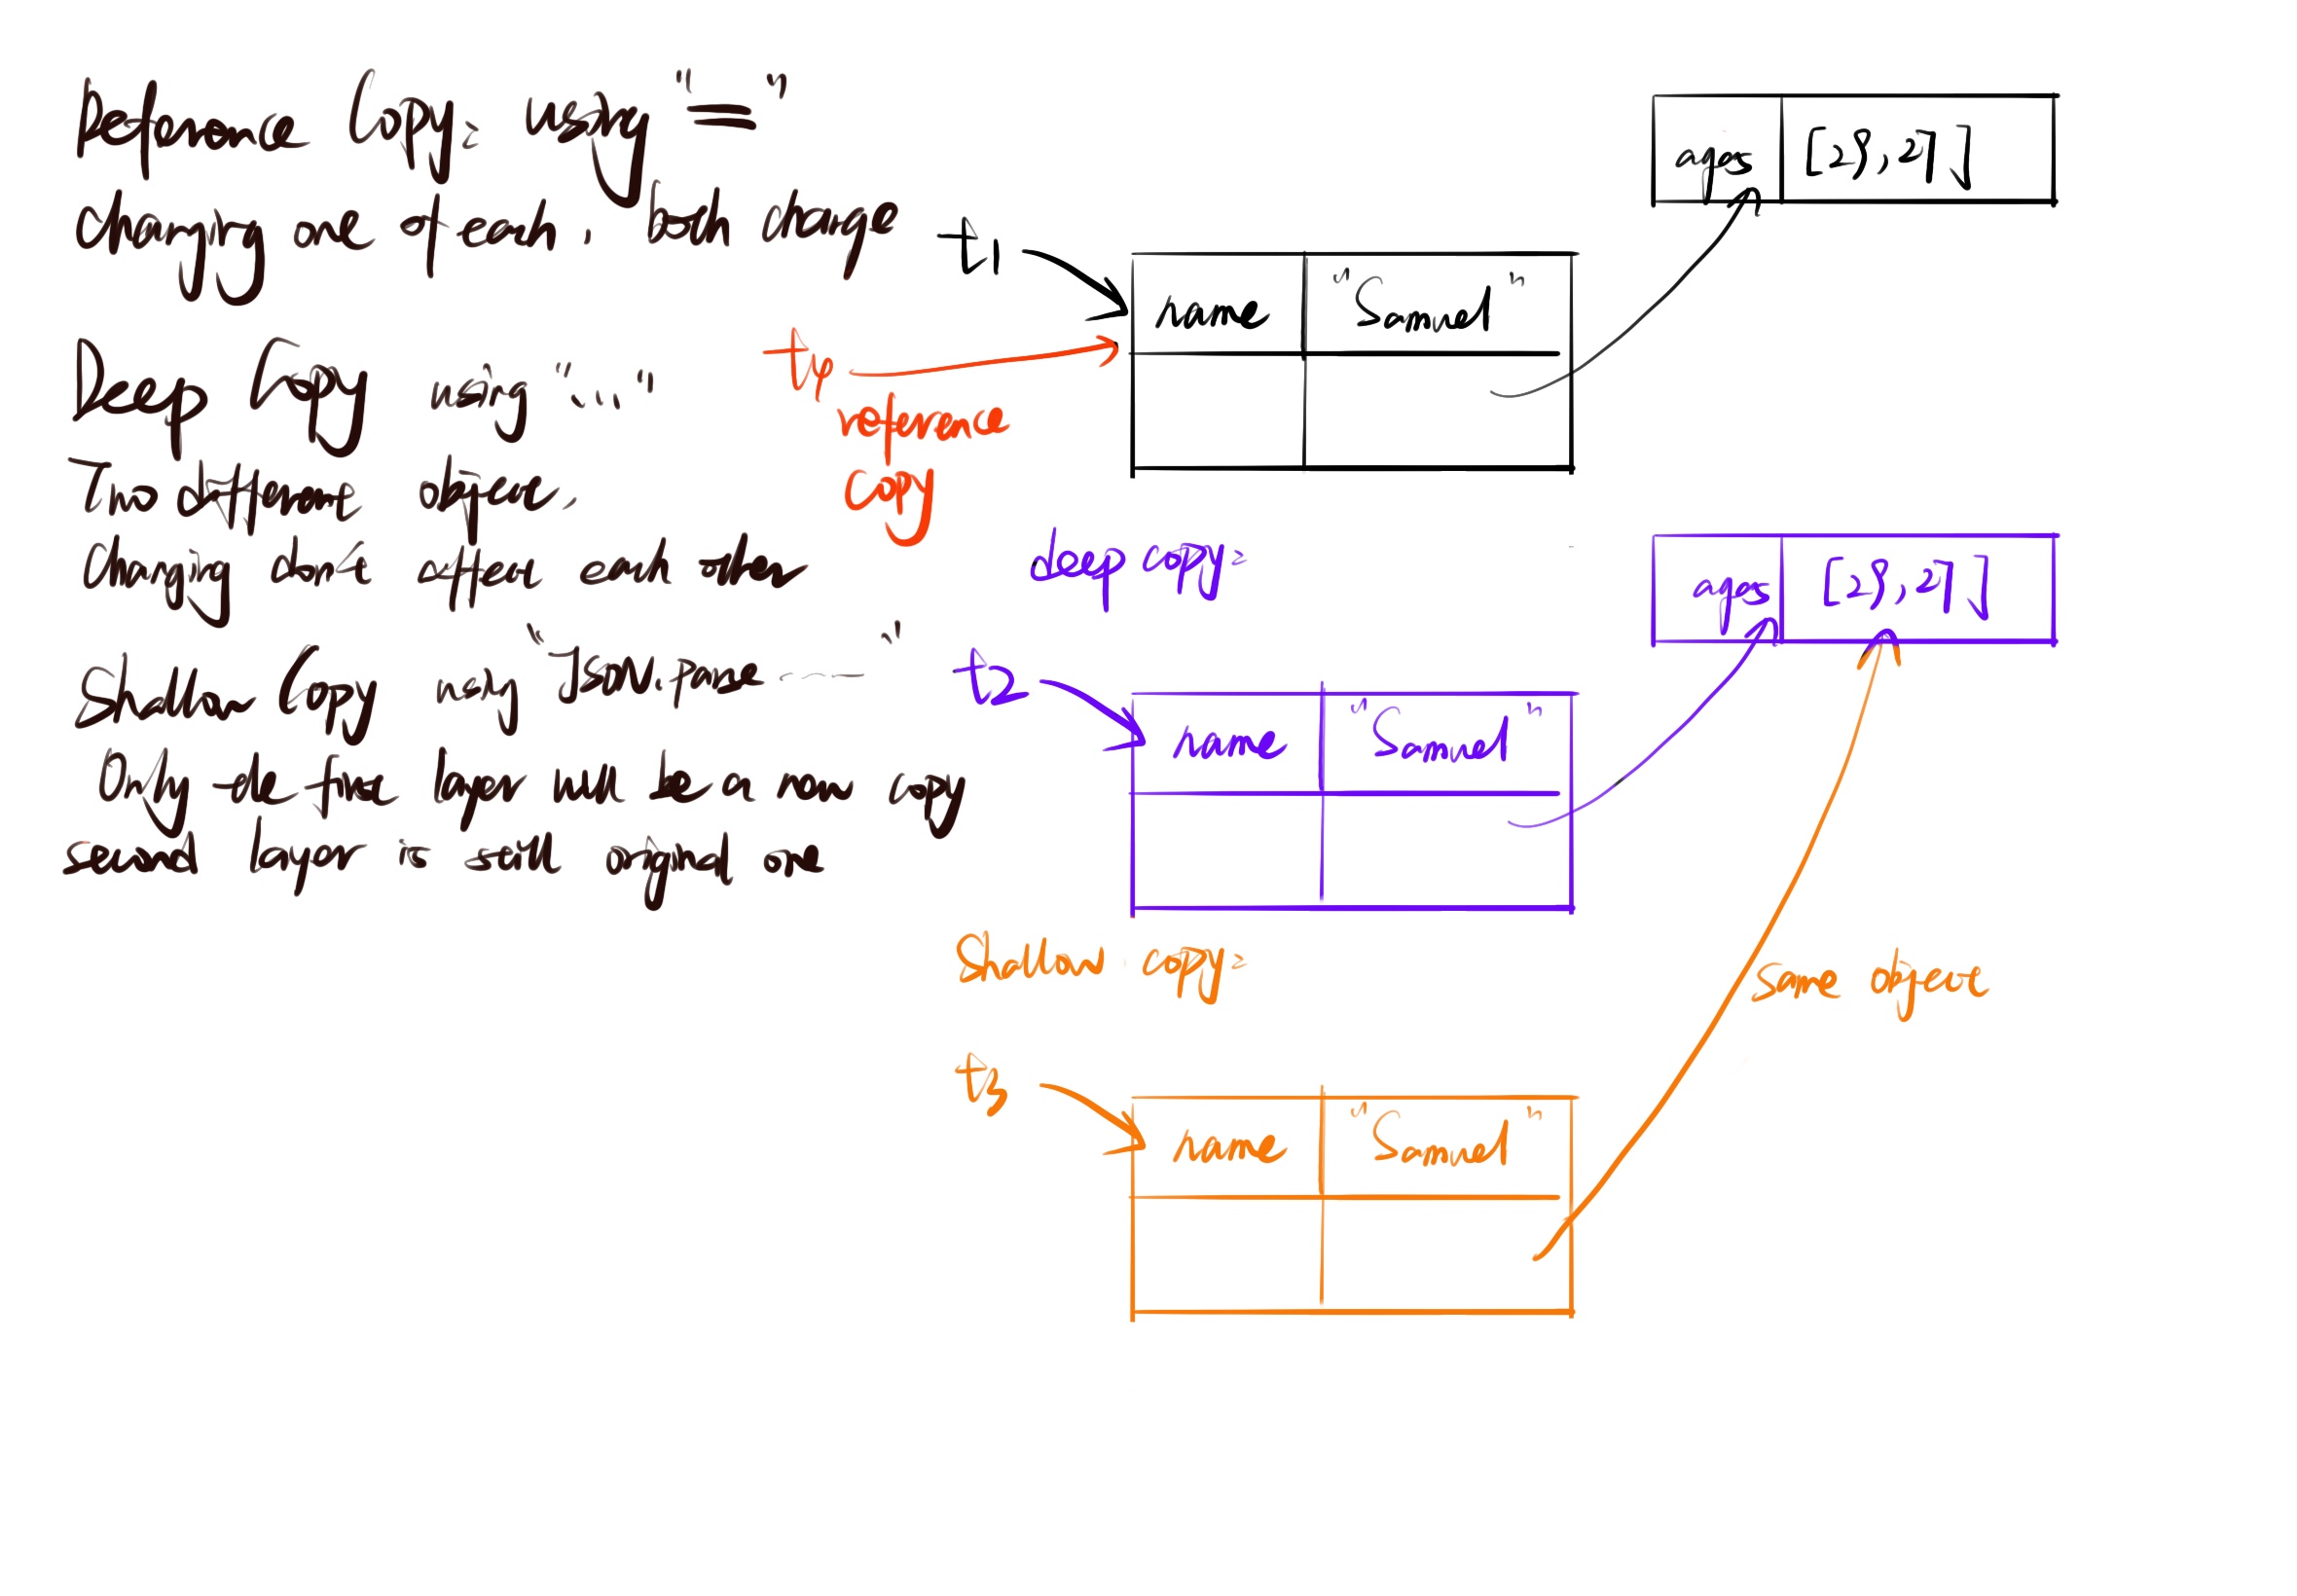 Reference Copy: using "="
changing one of each, both change
Deep Copy using "..."
Two different object,
Changing don't affect each other
Shallow Copy using "JSON.parse ---- "
Only the first layer will be a new copy
second layer is still original one
t1
name "Samuel"
ages [28, 27]
t4
reference
copy
deep copy:
t2
name "Samuel"
ages [28, 27]
Shallow copy:
t3
name "Samuel"
Same object